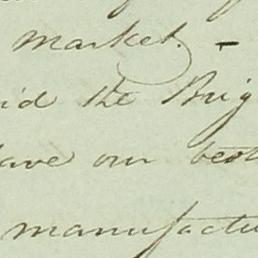 market. -
id the Brig
have our best
manufactu